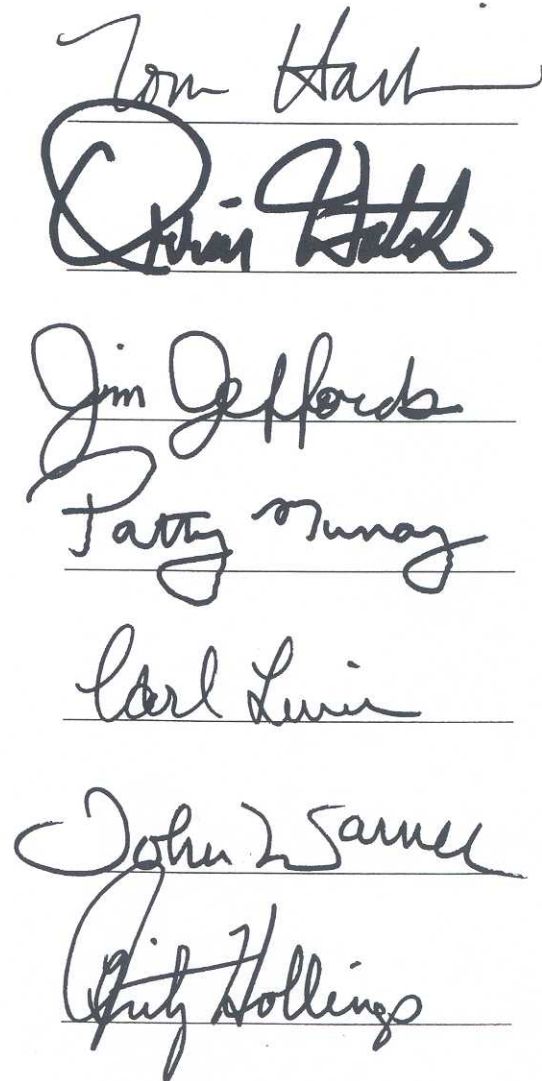 Tom Harkin
Orrin Hatch
Jim Jeffords
Patty Murray
Carl Levin
John Warner
Fritz Hollings